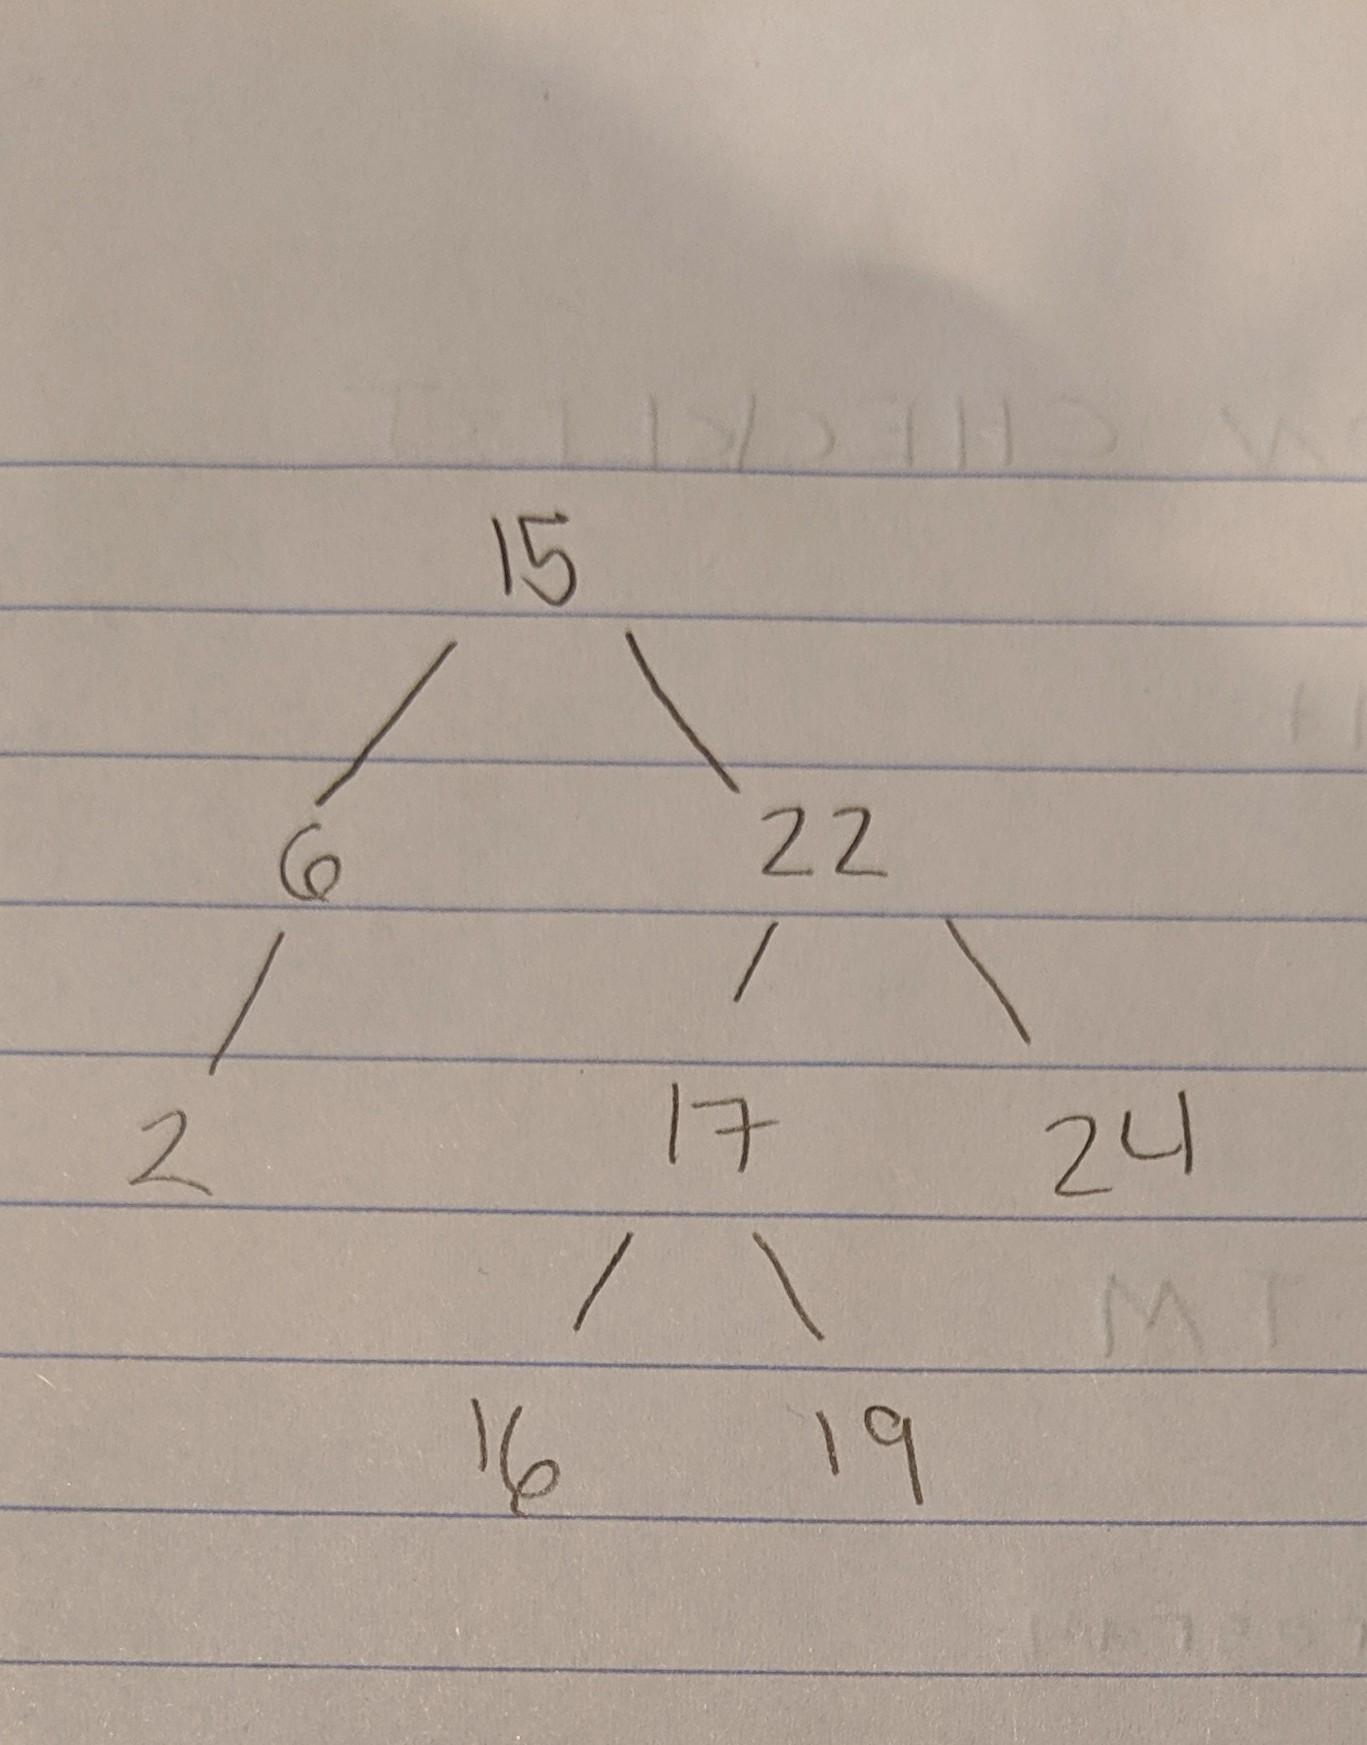 15
6 22
2 17 24
16 19